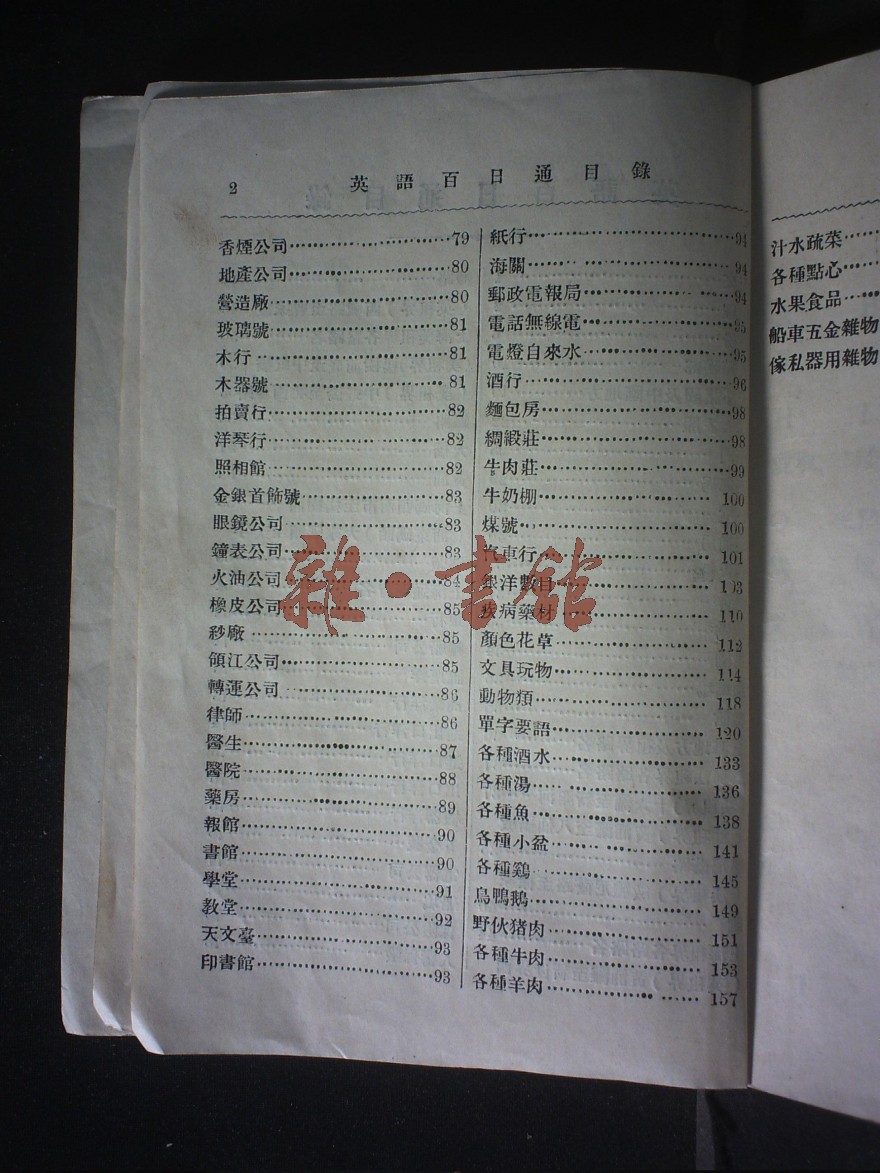 2 英語百日通目錄
香煙公司 79
地產公司 80
營造廠 80
玻璃號 81
木行 81
木器號 81
拍賣行 82
洋琴行 82
照相館 82
金銀首飾號 83
眼鏡公司 83
鐘表公司 83
火油公司 84
橡皮公司 85
紗廠 85
領江公司 85
轉運公司 86
律師 86
醫生 87
醫院 88
藥房 89
報館 90
書館 90
學堂 91
教堂 92
天文臺 93
印書館 93
紙行 94
海關 94
郵政電報局 94
電話無線電 95
電燈自來水 95
酒行 96
麵包房 98
綢緞莊 98
牛肉莊 99
牛奶棚 100
煤號 100
汽車行 101
銀洋數目 103
疾病藥材 110
顏色花草 112
文具玩物 114
動物類 118
單字要語 120
各種酒水 133
各種湯 136
各種魚 138
各種小盆 141
各種鷄 145
鳥鴨鵝 149
野伙猪肉 151
各種牛肉 153
各種羊肉 157
汁水疏菜
各種點心
水果食品
船車五金雜物
傢私器用雜物
雜·書館